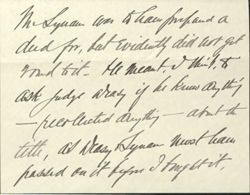 Mr Lynam was to have prepared a
deed for, but evidently did not get
round to it. He meant, I think, to
ask Judge Deasy if he knew anything
— recollected anything — about the
title, as Deasy & Lynam must have
passed on it before I bought it.